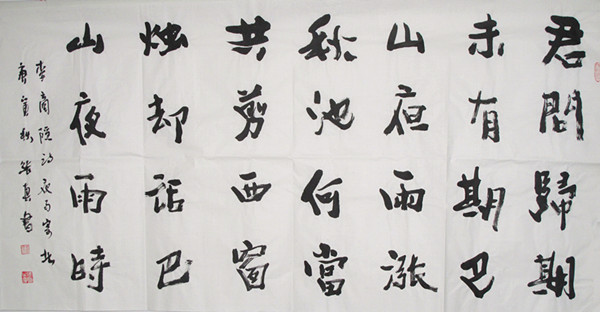 君問歸期
未有期巴
山夜雨漲
秋池何當
共剪西窗
烛却話巴
山夜雨時
李商隐诗夜雨寄北
庚寅秋書